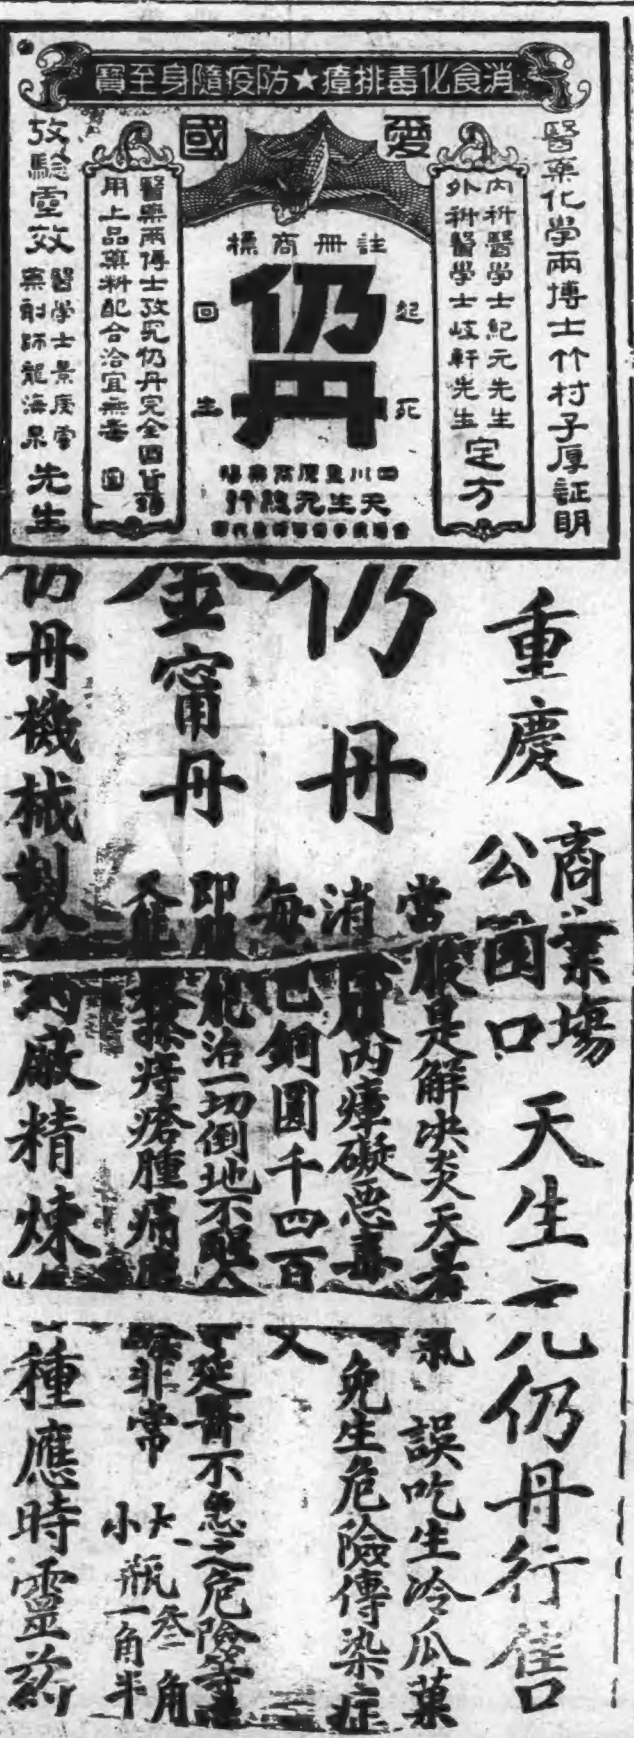 消食化毒排瘴★防疫隨身至寶
愛國
醫藥化學兩博士竹村子厚証明
內科醫學士紀元先生
外科醫學士岐軒先生
定方
註冊商標
起死
仍丹
回生
四川重慶商業場
天生元總行
醫藥兩博士攷究仍丹完全國貨
用上品藥料配合洽宜無毒
攷驗靈效
醫學士景慶堂
藥劑師龍海泉
先生
重慶
商業場
公園口
天生元仍丹行售
仍丹
當服是解決炎天暑氣
誤吃生冷瓜菓
消腹內瘴礙惡毒
免生危險傳染症
每包銅圓千四百文
金甯丹
即服能治一切倒地不醒
延醫不急之危險等
搽痔瘡腫痛
非常
大瓶叁角
小瓶一角半
仍丹機械製
葯廠精煉
種應時靈葯